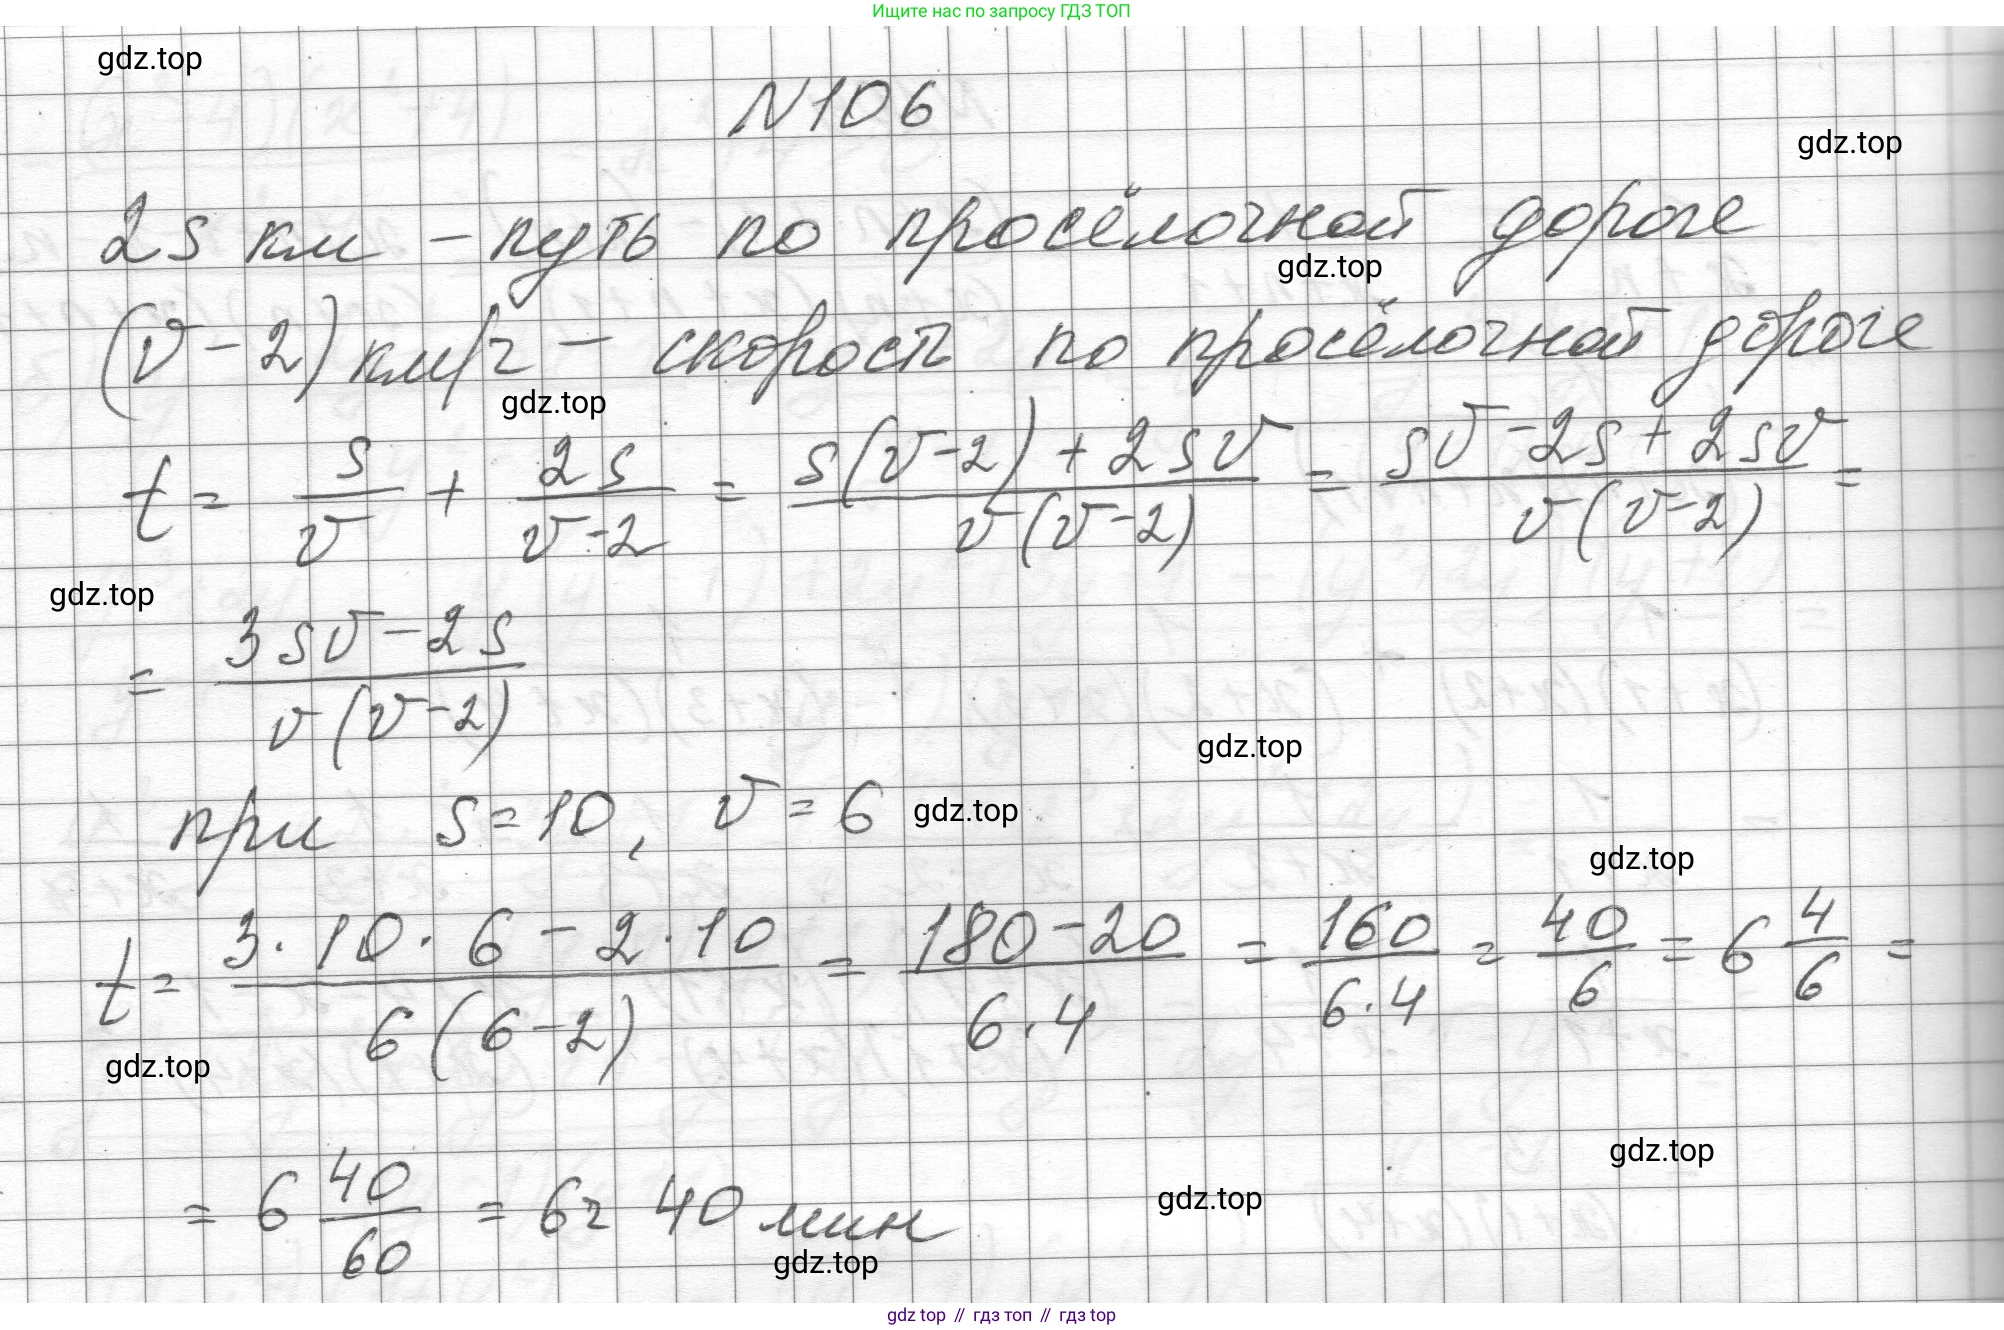 Ищите нас по запросу ГДЗ ТОП
gdz.top
N106
gdz.top
2s км – путь по просёлочной дороге
gdz.top
(v-2) км/ч – скорость по просёлочной дороге
gdz.top
t = s/v + 2s/(v-2) = (s(v-2)+2sv)/(v(v-2)) = (sv-2s+2sv)/(v(v-2)) =
gdz.top
= (3sv-2s)/(v(v-2))
gdz.top
при s=10, v=6
gdz.top
gdz.top
t = (3·10·6-2·10)/(6(6-2)) = (180-20)/(6·4) = 160/(6·4) = 40/6 = 6 4/6 =
gdz.top
gdz.top
= 6 40/60 = 6ч 40 мин
gdz.top
gdz.top
gdz top // гдз топ // гдз top